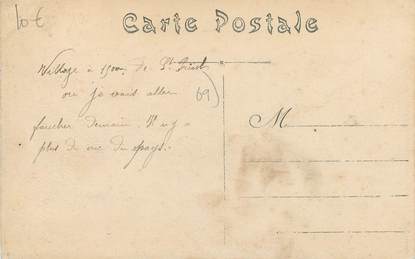 10€
Carte Postale
Village à 1500m de St
où je vais aller
69
faucher demain. Il n'y a
plus de vue du pays.
M